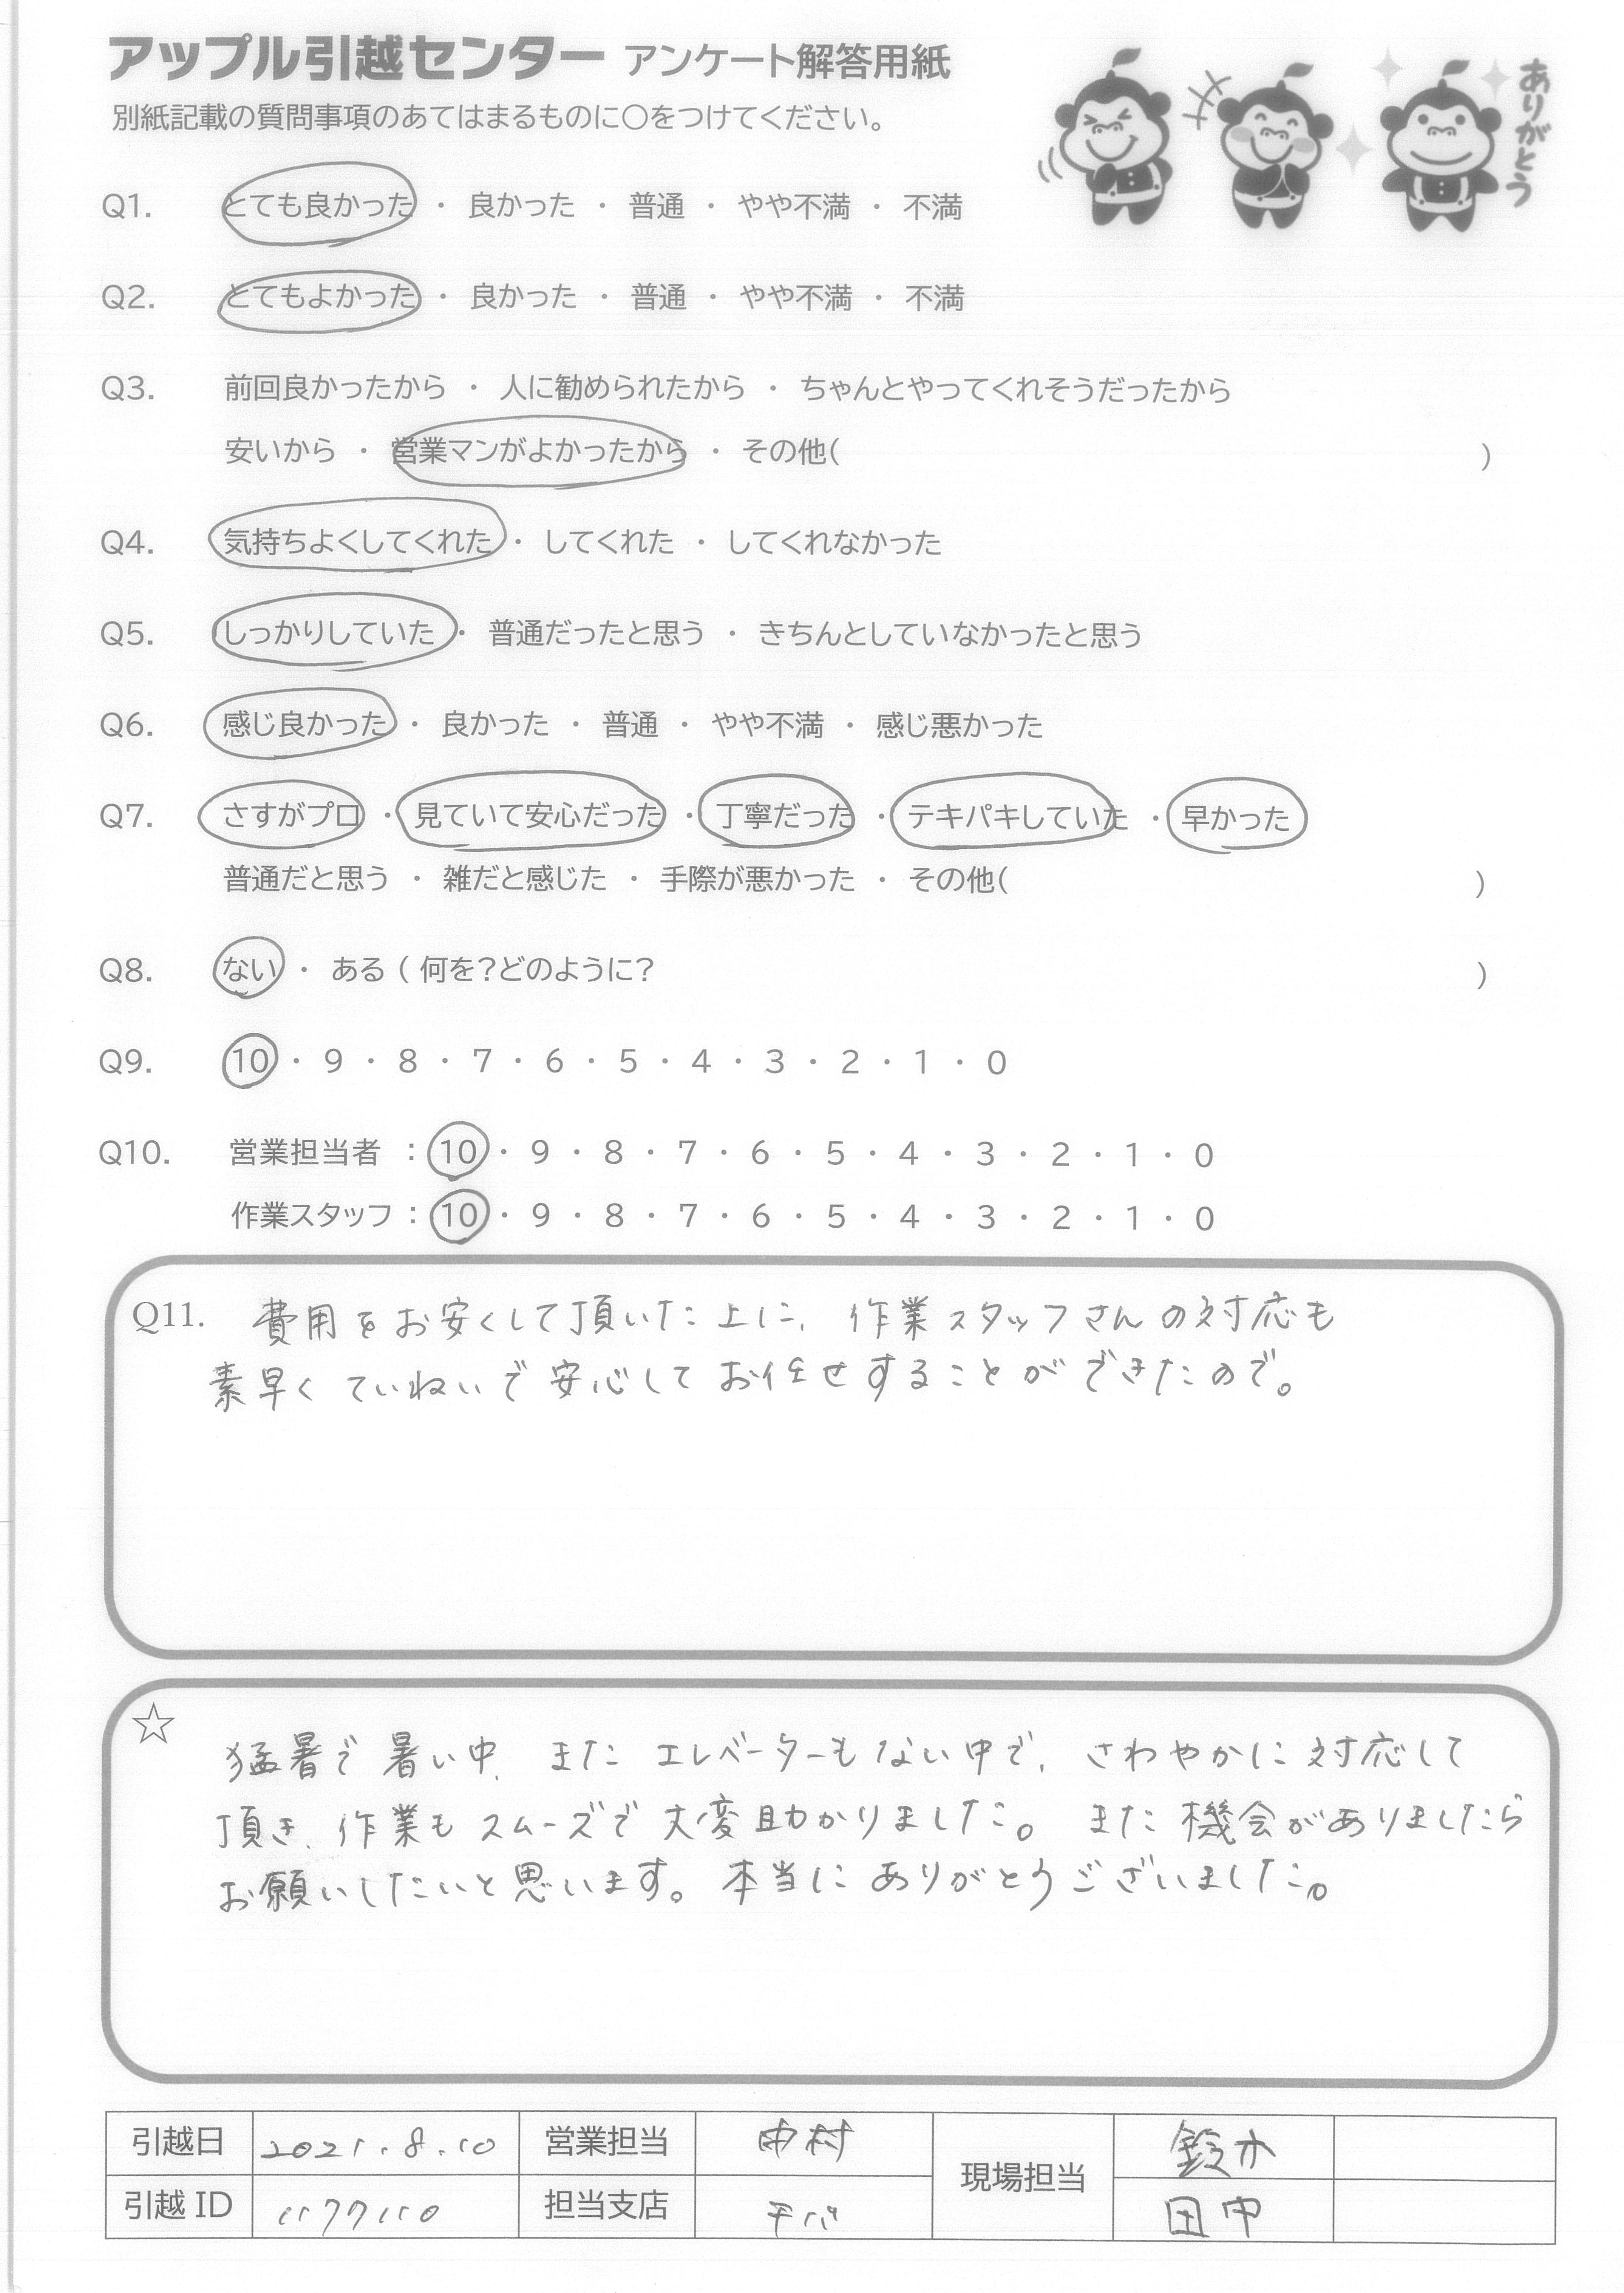 アップル引越センター アンケート解答用紙
別紙記載の質問事項のあてはまるものに〇をつけてください。
ありがとう
Q1. とても良かった ・ 良かった ・ 普通 ・ やや不満 ・ 不満
Q2. とてもよかった ・ 良かった ・ 普通 ・ やや不満 ・ 不満
Q3. 前回良かったから ・ 人に勧められたから ・ ちゃんとやってくれそうだったから
安いから ・ 営業マンがよかったから ・ その他( )
Q4. 気持ちよくしてくれた ・ してくれた ・ してくれなかった
Q5. しっかりしていた ・ 普通だったと思う ・ きちんとしていなかったと思う
Q6. 感じ良かった ・ 良かった ・ 普通 ・ やや不満 ・ 感じ悪かった
Q7. さすがプロ ・ 見ていて安心だった ・ 丁寧だった ・ テキパキしていた ・ 早かった
普通だと思う ・ 雑だと感じた ・ 手際が悪かった ・ その他( )
Q8. ない ・ ある ( 何を?どのように? )
Q9. 10 ・ 9 ・ 8 ・ 7 ・ 6 ・ 5 ・ 4 ・ 3 ・ 2 ・ 1 ・ 0
Q10. 営業担当者 : 10 ・ 9 ・ 8 ・ 7 ・ 6 ・ 5 ・ 4 ・ 3 ・ 2 ・ 1 ・ 0
作業スタッフ : 10 ・ 9 ・ 8 ・ 7 ・ 6 ・ 5 ・ 4 ・ 3 ・ 2 ・ 1 ・ 0
Q11. 費用をお安くして頂いた上に、作業スタッフさんの対応も
素早くていねいで安心してお任せすることができたので。
☆ 猛暑で暑い中、またエレベーターもない中で、さわやかに対応して
頂き、作業もスムーズで大変助かりました。また機会がありましたら
お願いしたいと思います。本当にありがとうございました。
引越日 2021.8.10 営業担当 中村 現場担当 鈴木
引越 ID 1177110 担当支店 千バ 田中